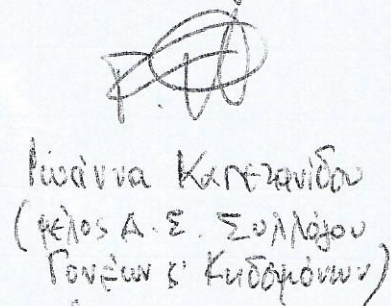 Ιωάννα Καπετανίδου
(μέλος Δ.Σ. Συλλόγου
Γονέων & Κηδεμόνων)